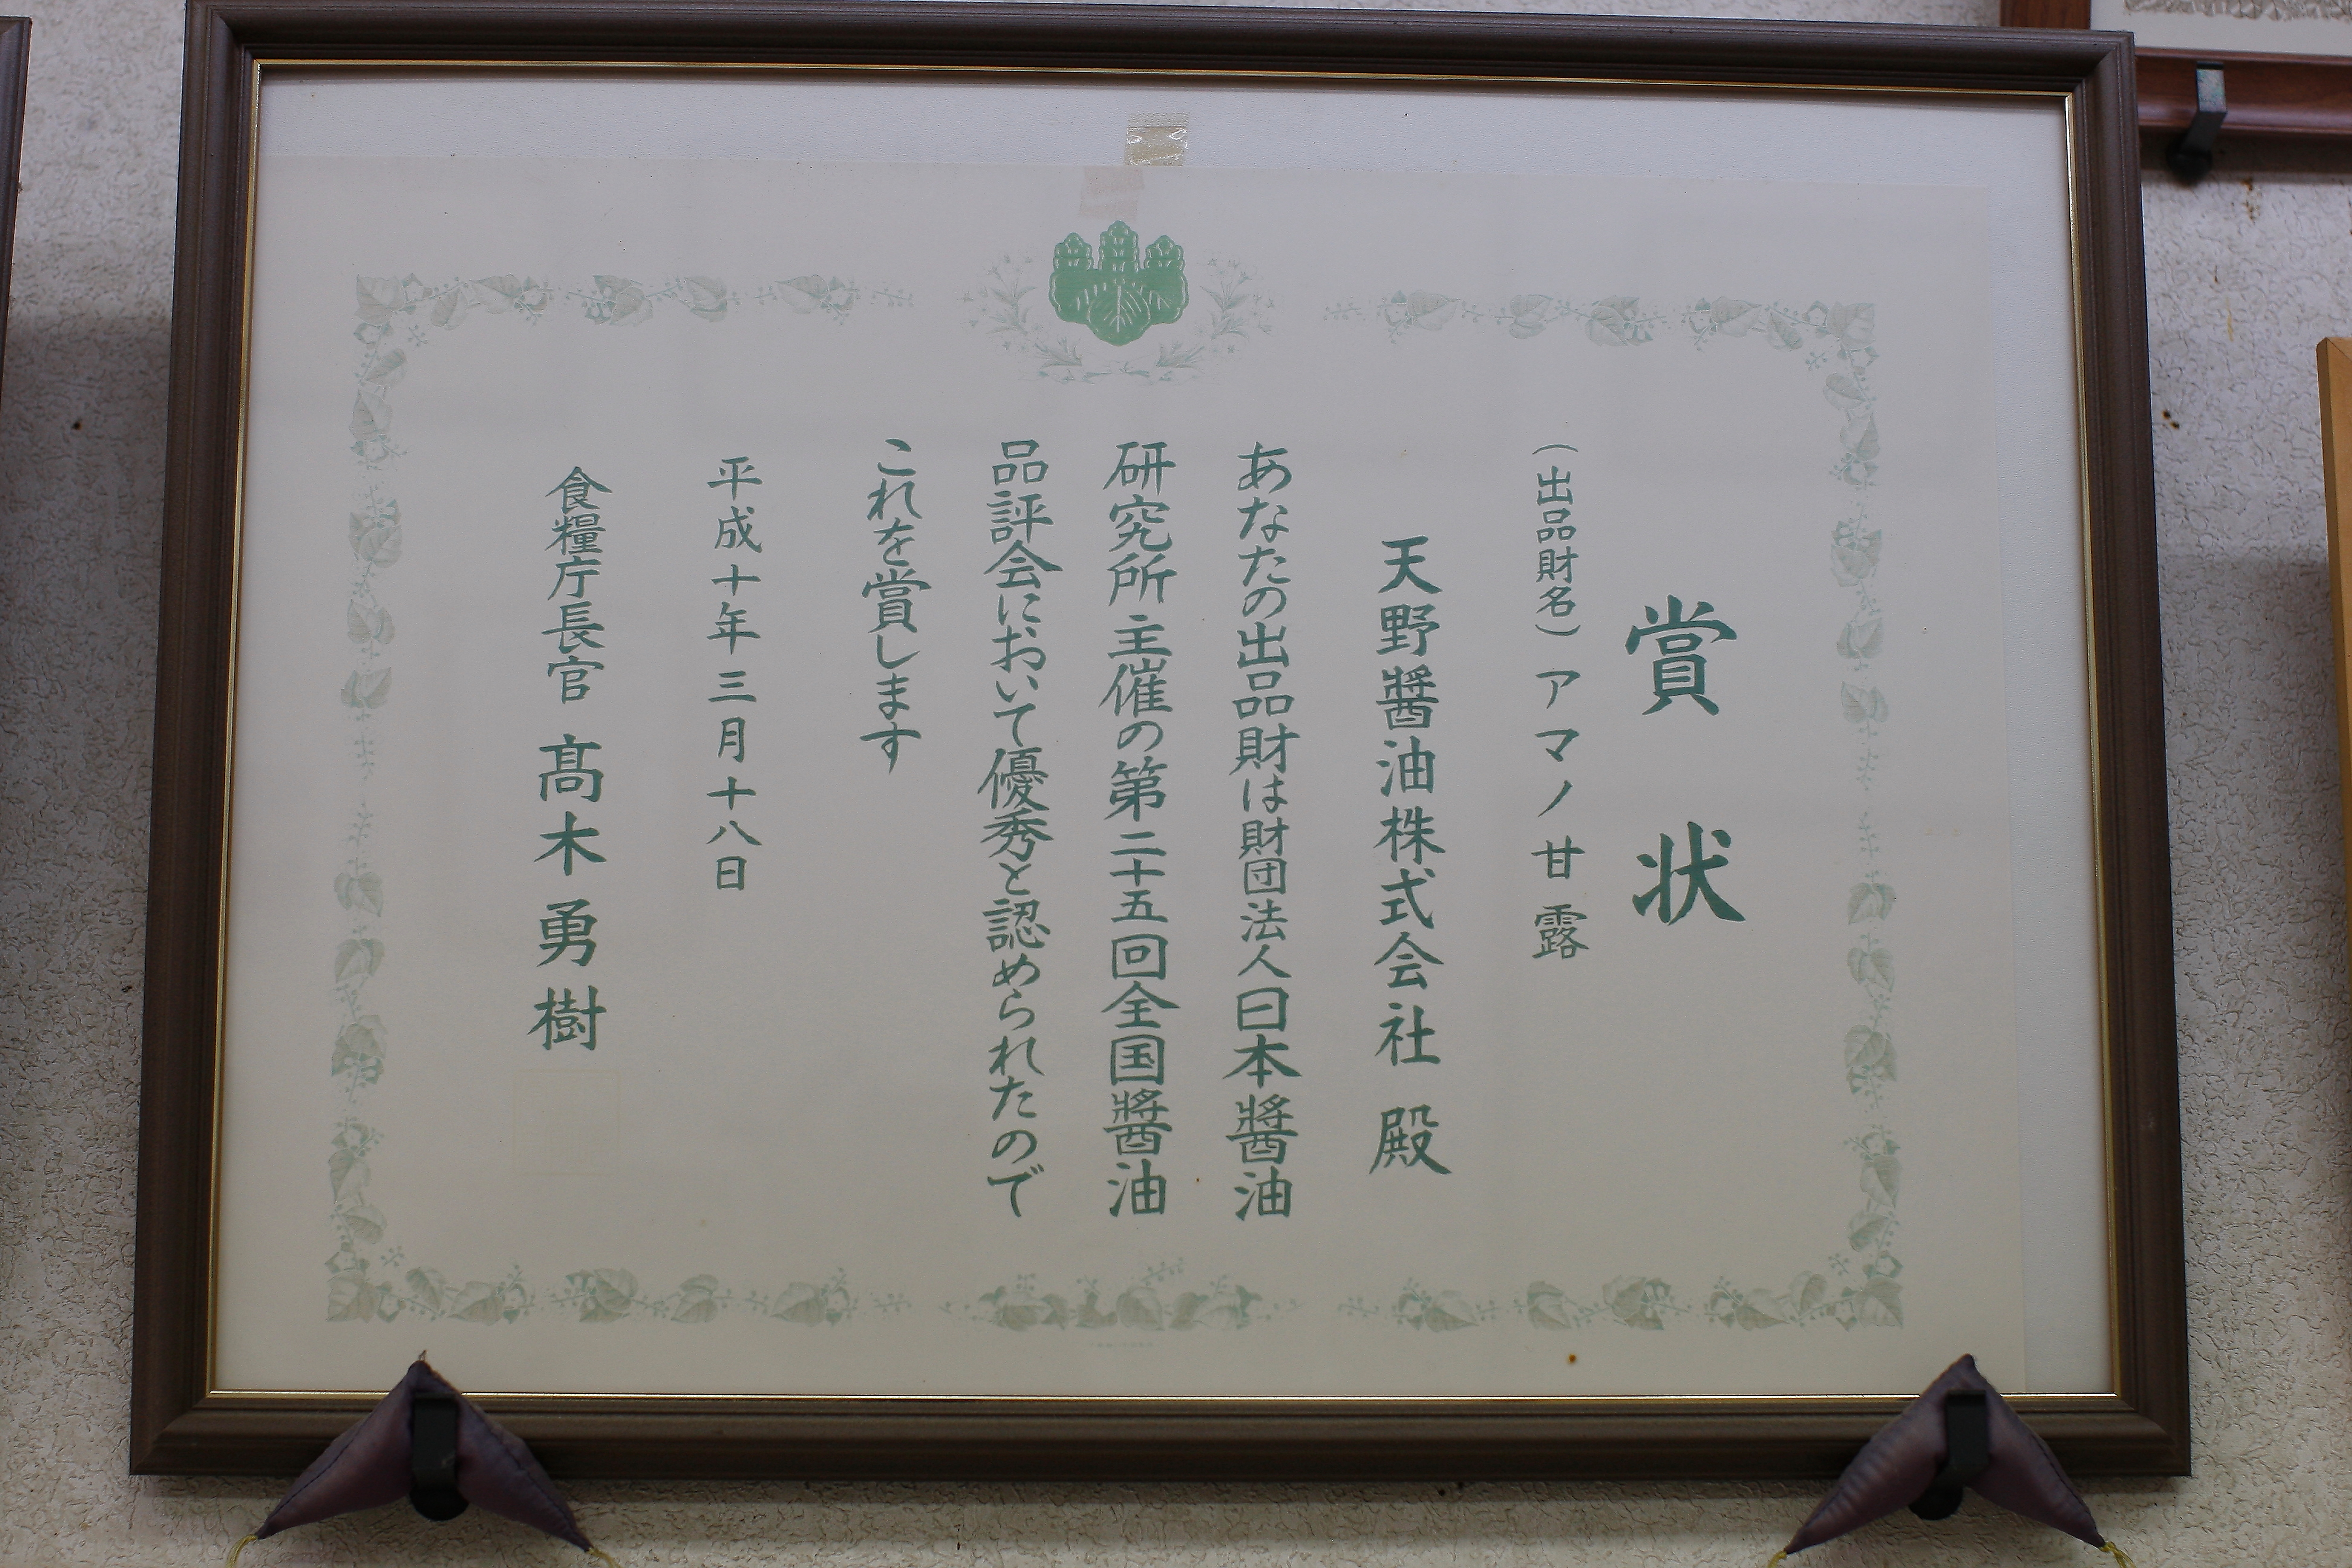 賞状
（出品財名）アマノ甘露
天野醬油株式会社 殿
あなたの出品財は財団法人日本醬油
研究所主催の第二十五回全国醬油
品評会において優秀と認められたので
これを賞します
平成十年三月十八日
食糧庁長官 髙木勇樹